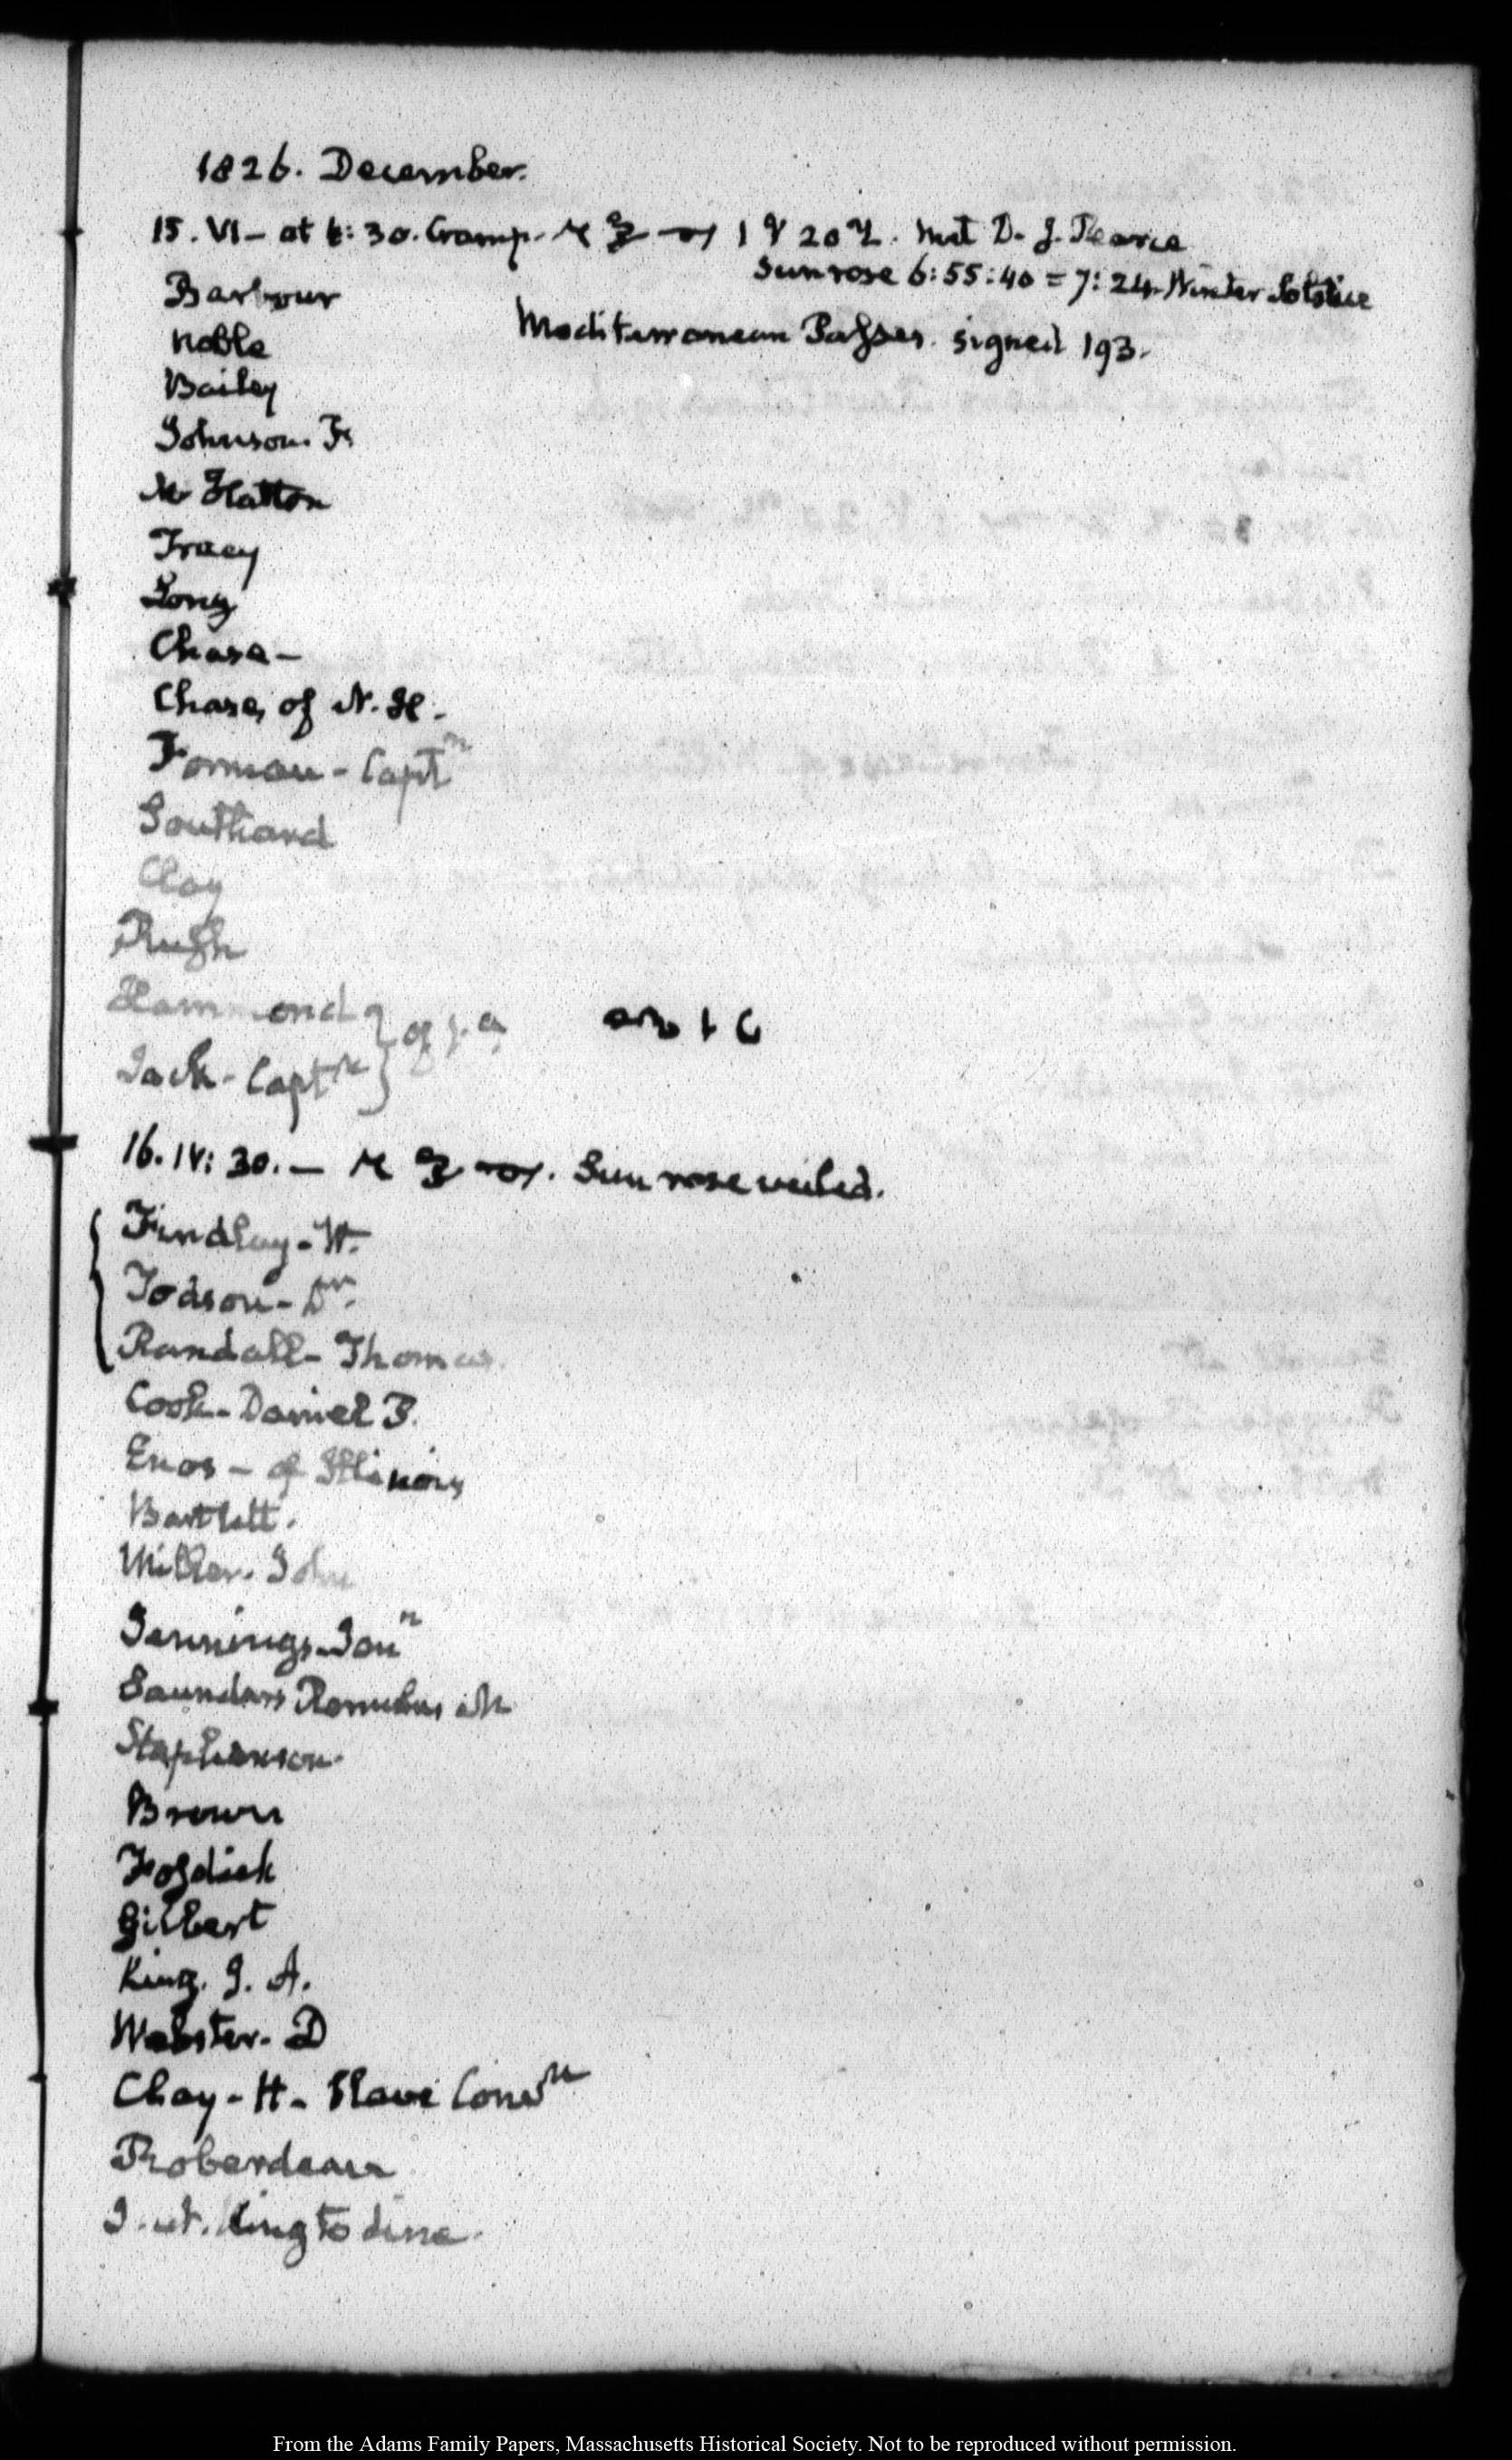 1826. December.
15. VI- at 30. Cramp. Met D. J. Pearce
Sun rose 6:55:40 = 7:24. Winter Solstice
Barbour
Mediterranean Passes. signed 193.
Noble
Bailey
Johnson. Fs
Mc Hatton
Tracy
Long
Chase-
Chase, of N. H.
Forman- Captn
Southard
Clay
Rush
Hammond
Captn } of
16. IV: 30. - Sun rose veiled.
Findlay- W.
Todson- Dr.
Randall- Thomas.
Cook- Daniel P.
Enos- of Illinois
Bartlett.
Miller. John
Jennings. Jonn
Saunders Romulus M
Stephenson.
Brown
Fosdick
Gilbert
King. J. A.
Webster. D
Clay- H- Slave Convn
Roberdeau
J. A. King to dine.
From the Adams Family Papers, Massachusetts Historical Society. Not to be reproduced without permission.